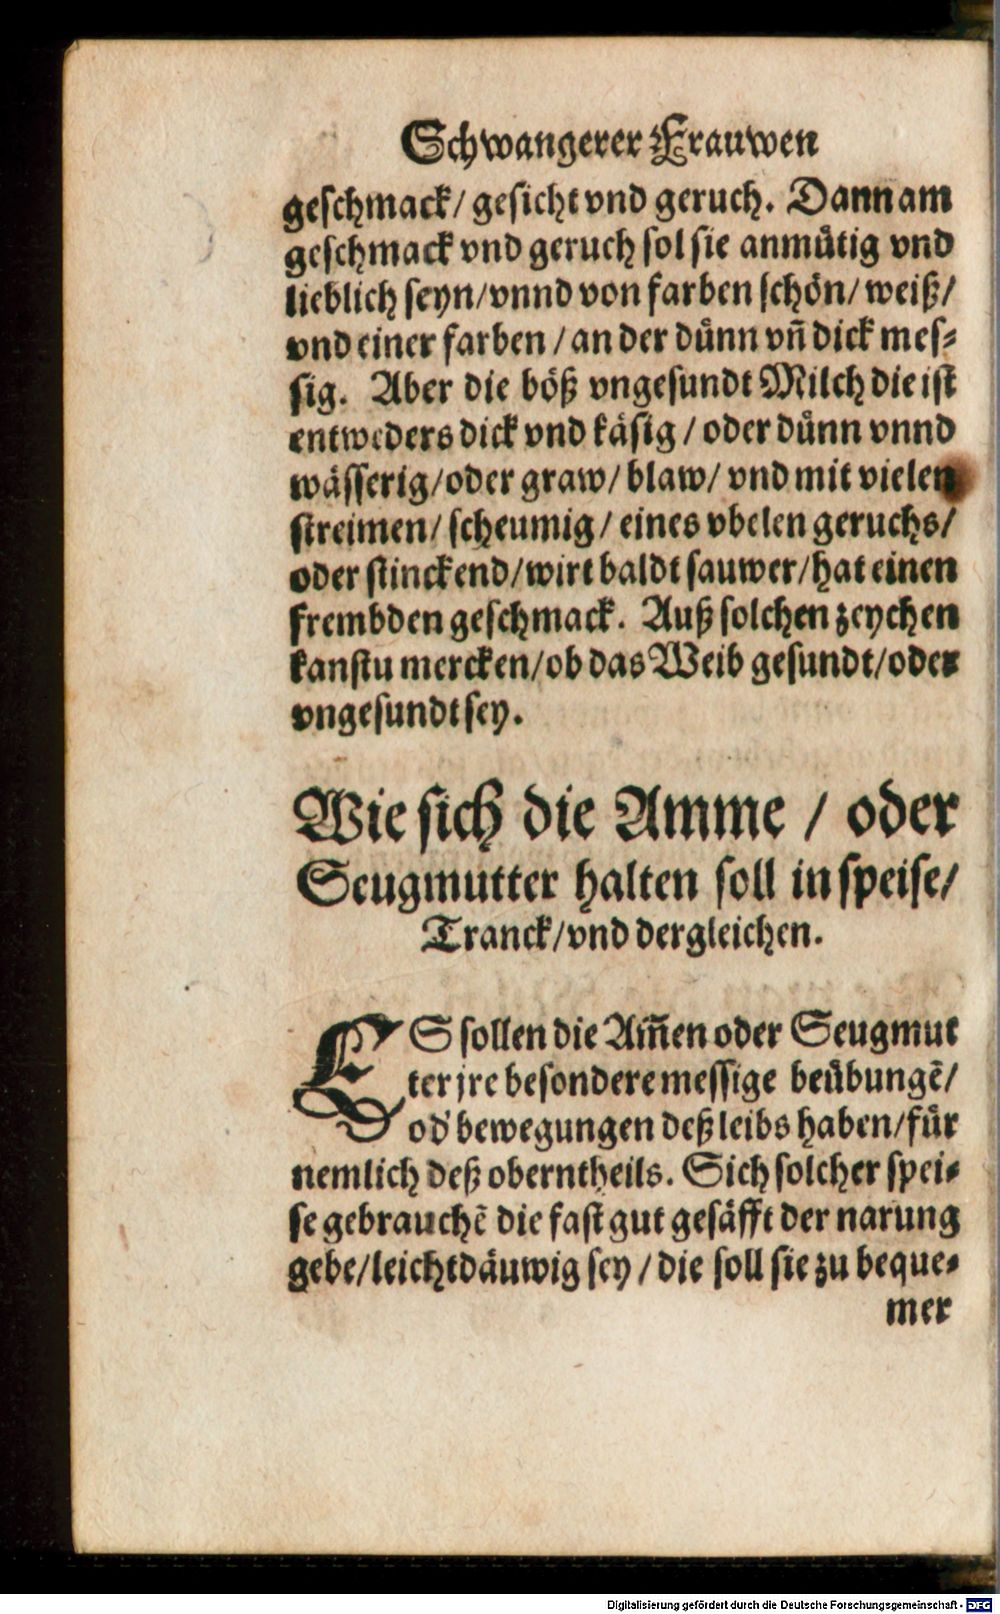 Schwangerer Frauwen
geschmack/ gesicht vnd geruch. Dann am
geschmack vnd geruch sol sie anmütig vnd
lieblich seyn/vnnd von farben schön/ weiß/
vnd einer farben / an der dünn vñ dick mes-
sig. Aber die böß vngesundt Milch die ist
entweders dick vnd käsig / oder dünn vnnd
wässerig/oder graw/ blaw/ vnd mit vielen
streimen/ scheumig/ eines vbelen geruchs/
oder stinckend/wirt baldt sauwer/hat einen
frembden geschmack. Auß solchen zeychen
kanstu mercken/ob das Weib gesundt/oder
vngesundt sey.
Wie sich die Amme / oder
Seugmutter halten soll in speise/
Tranck/vnd dergleichen.
ES sollen die Am̃en oder Seugmut
ter jre besondere messige beübungẽ/
od' bewegungen deß leibs haben/für
nemlich deß oberntheils. Sich solcher spei-
se gebrauchẽ die fast gut gesäfft der narung
gebe/leichtdäuwig sey / die soll sie zu beque-
mer
Digitalisierung gefördert durch die Deutsche Forschungsgemeinschaft - DFG